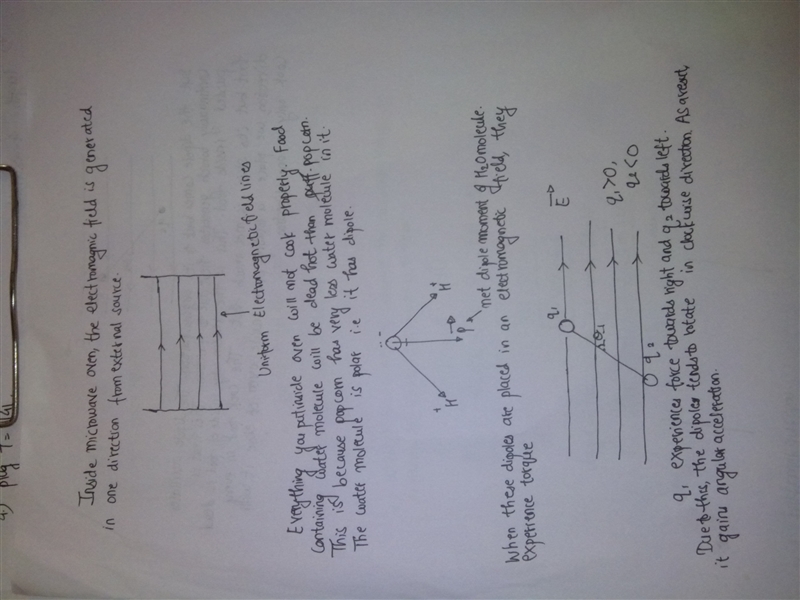 Inside microwave oven, the electromagnic field is generated
in one direction from external source.
Uniform Electromagnetic field lines
Everything you put inside oven will not cook properly. Food
containing water molecule will be dead hot than popcorn.
This is because popcorn has very less water molecule in it.
The water molecule is polar i.e it has dipole.
H
H
P
net dipole moment of H2O molecule.
When these dipoles are placed in an electromagnetic field, they
experience torque
q1
E
θ
q1>0,
q2<0
q2
q1 experiences force towards right and q2 towards left.
Due to this, the dipoles tends to rotate in clockwise direction. As a result,
it gains angular acceleration.